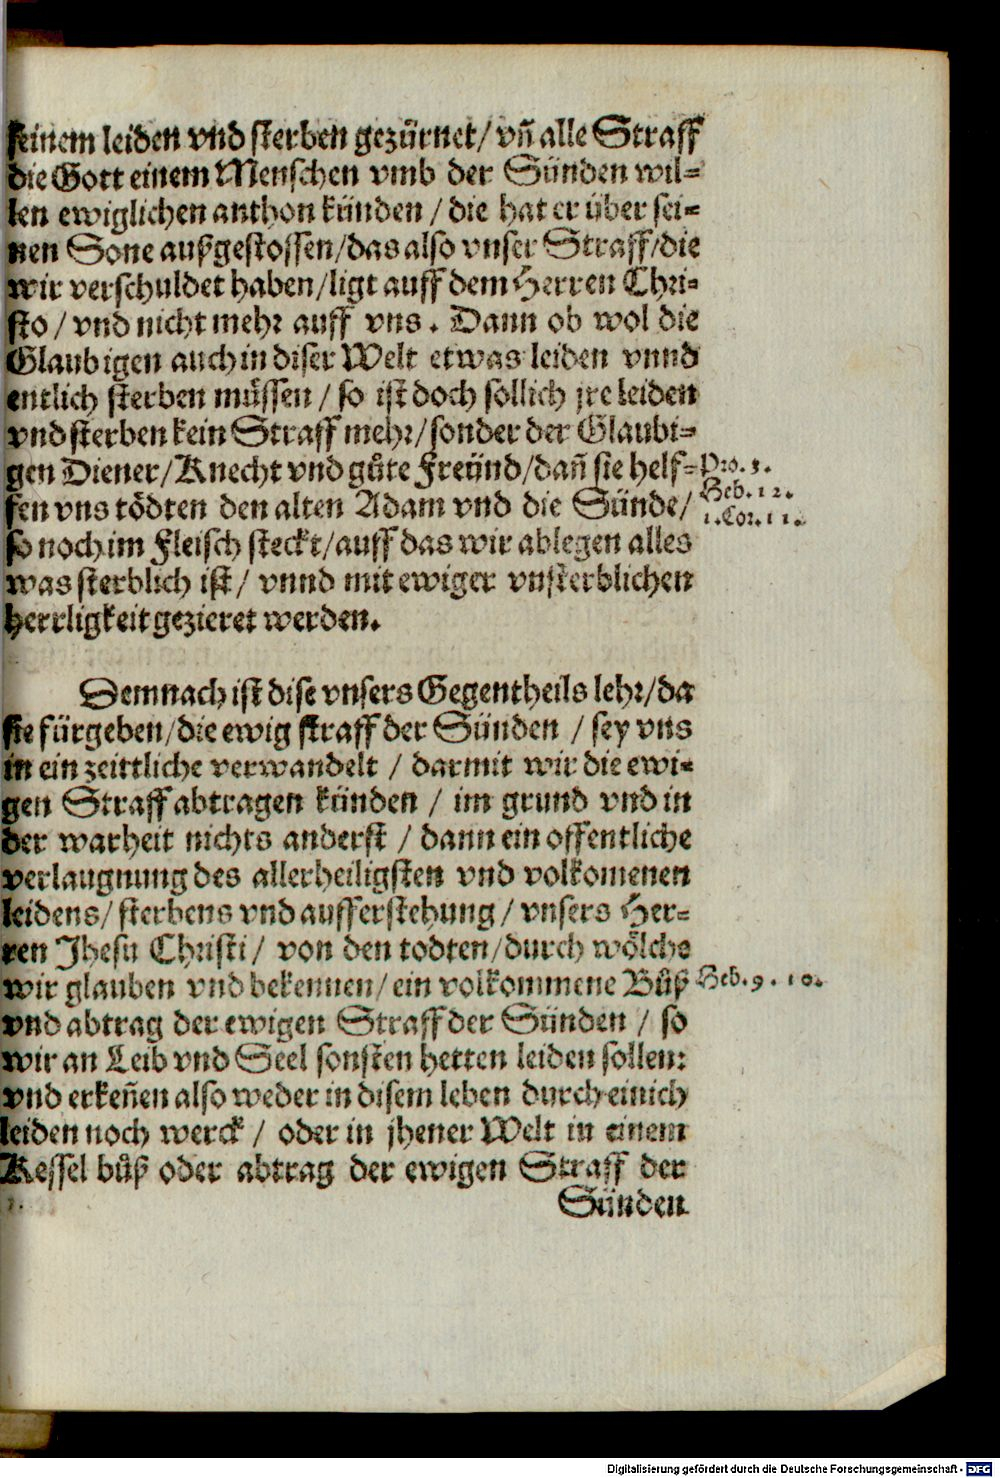 seinem leiden vnd sterben gezürnet/ vn̄ alle Straff
die Gott einem Menschen vmb der Sünden wil-
len ewiglichen anthon künden / die hat er über sei-
nen Sone außgestossen/das also vnser Straff/die
wir verschuldet haben/ligt auff dem Herren Chri-
sto / vnd nicht mehr auff vns . Dann ob wol die
Glaubigen auch in diser Welt etwas leiden vnnd
entlich sterben müssen / so ist doch sollich jre leiden
vnd sterben kein Straff mehr/sonder der Glaubi-
gen Diener/Knecht vnd gůte Freünd/dan̄ sie helf- Pro. 3.
fen vns tödten den alten Adam vnd die Sünde/ Heb. 12.
1. Cor. 11.
so noch im Fleisch steckt/auff das wir ablegen alles
was sterblich ist/ vnnd mit ewiger vnsterblichen
herrligkeit gezieret werden.
Demnach ist dise vnsers Gegentheils lehr/da
sie fürgeben/die ewig straff der Sünden / sey vns
in ein zeittliche verwandelt / darmit wir die ewi-
gen Straff abtragen künden / im grund vnd in
der warheit nichts anderst / dann ein offentliche
verlaugnung des allerheiligsten vnd volkomenen
leidens/ sterbens vnd aufferstehung/ vnsers Her-
ren Jhesu Christi/ von den todten/durch wölchs
wir glauben vnd bekennen/ ein volkommene Bůß Heb. 9. 10.
vnd abtrag der ewigen Straff der Sünden / so
wir an Leib vnd Seel sonsten hetten leiden sollen:
vnd erken̄en also weder in disem leben durch einich
leiden noch werck / oder in jhener Welt in einem
Kessel bůß oder abtrag der ewigen Straff der
Sünden
Digitalisierung gefördert durch die Deutsche Forschungsgemeinschaft - DFG